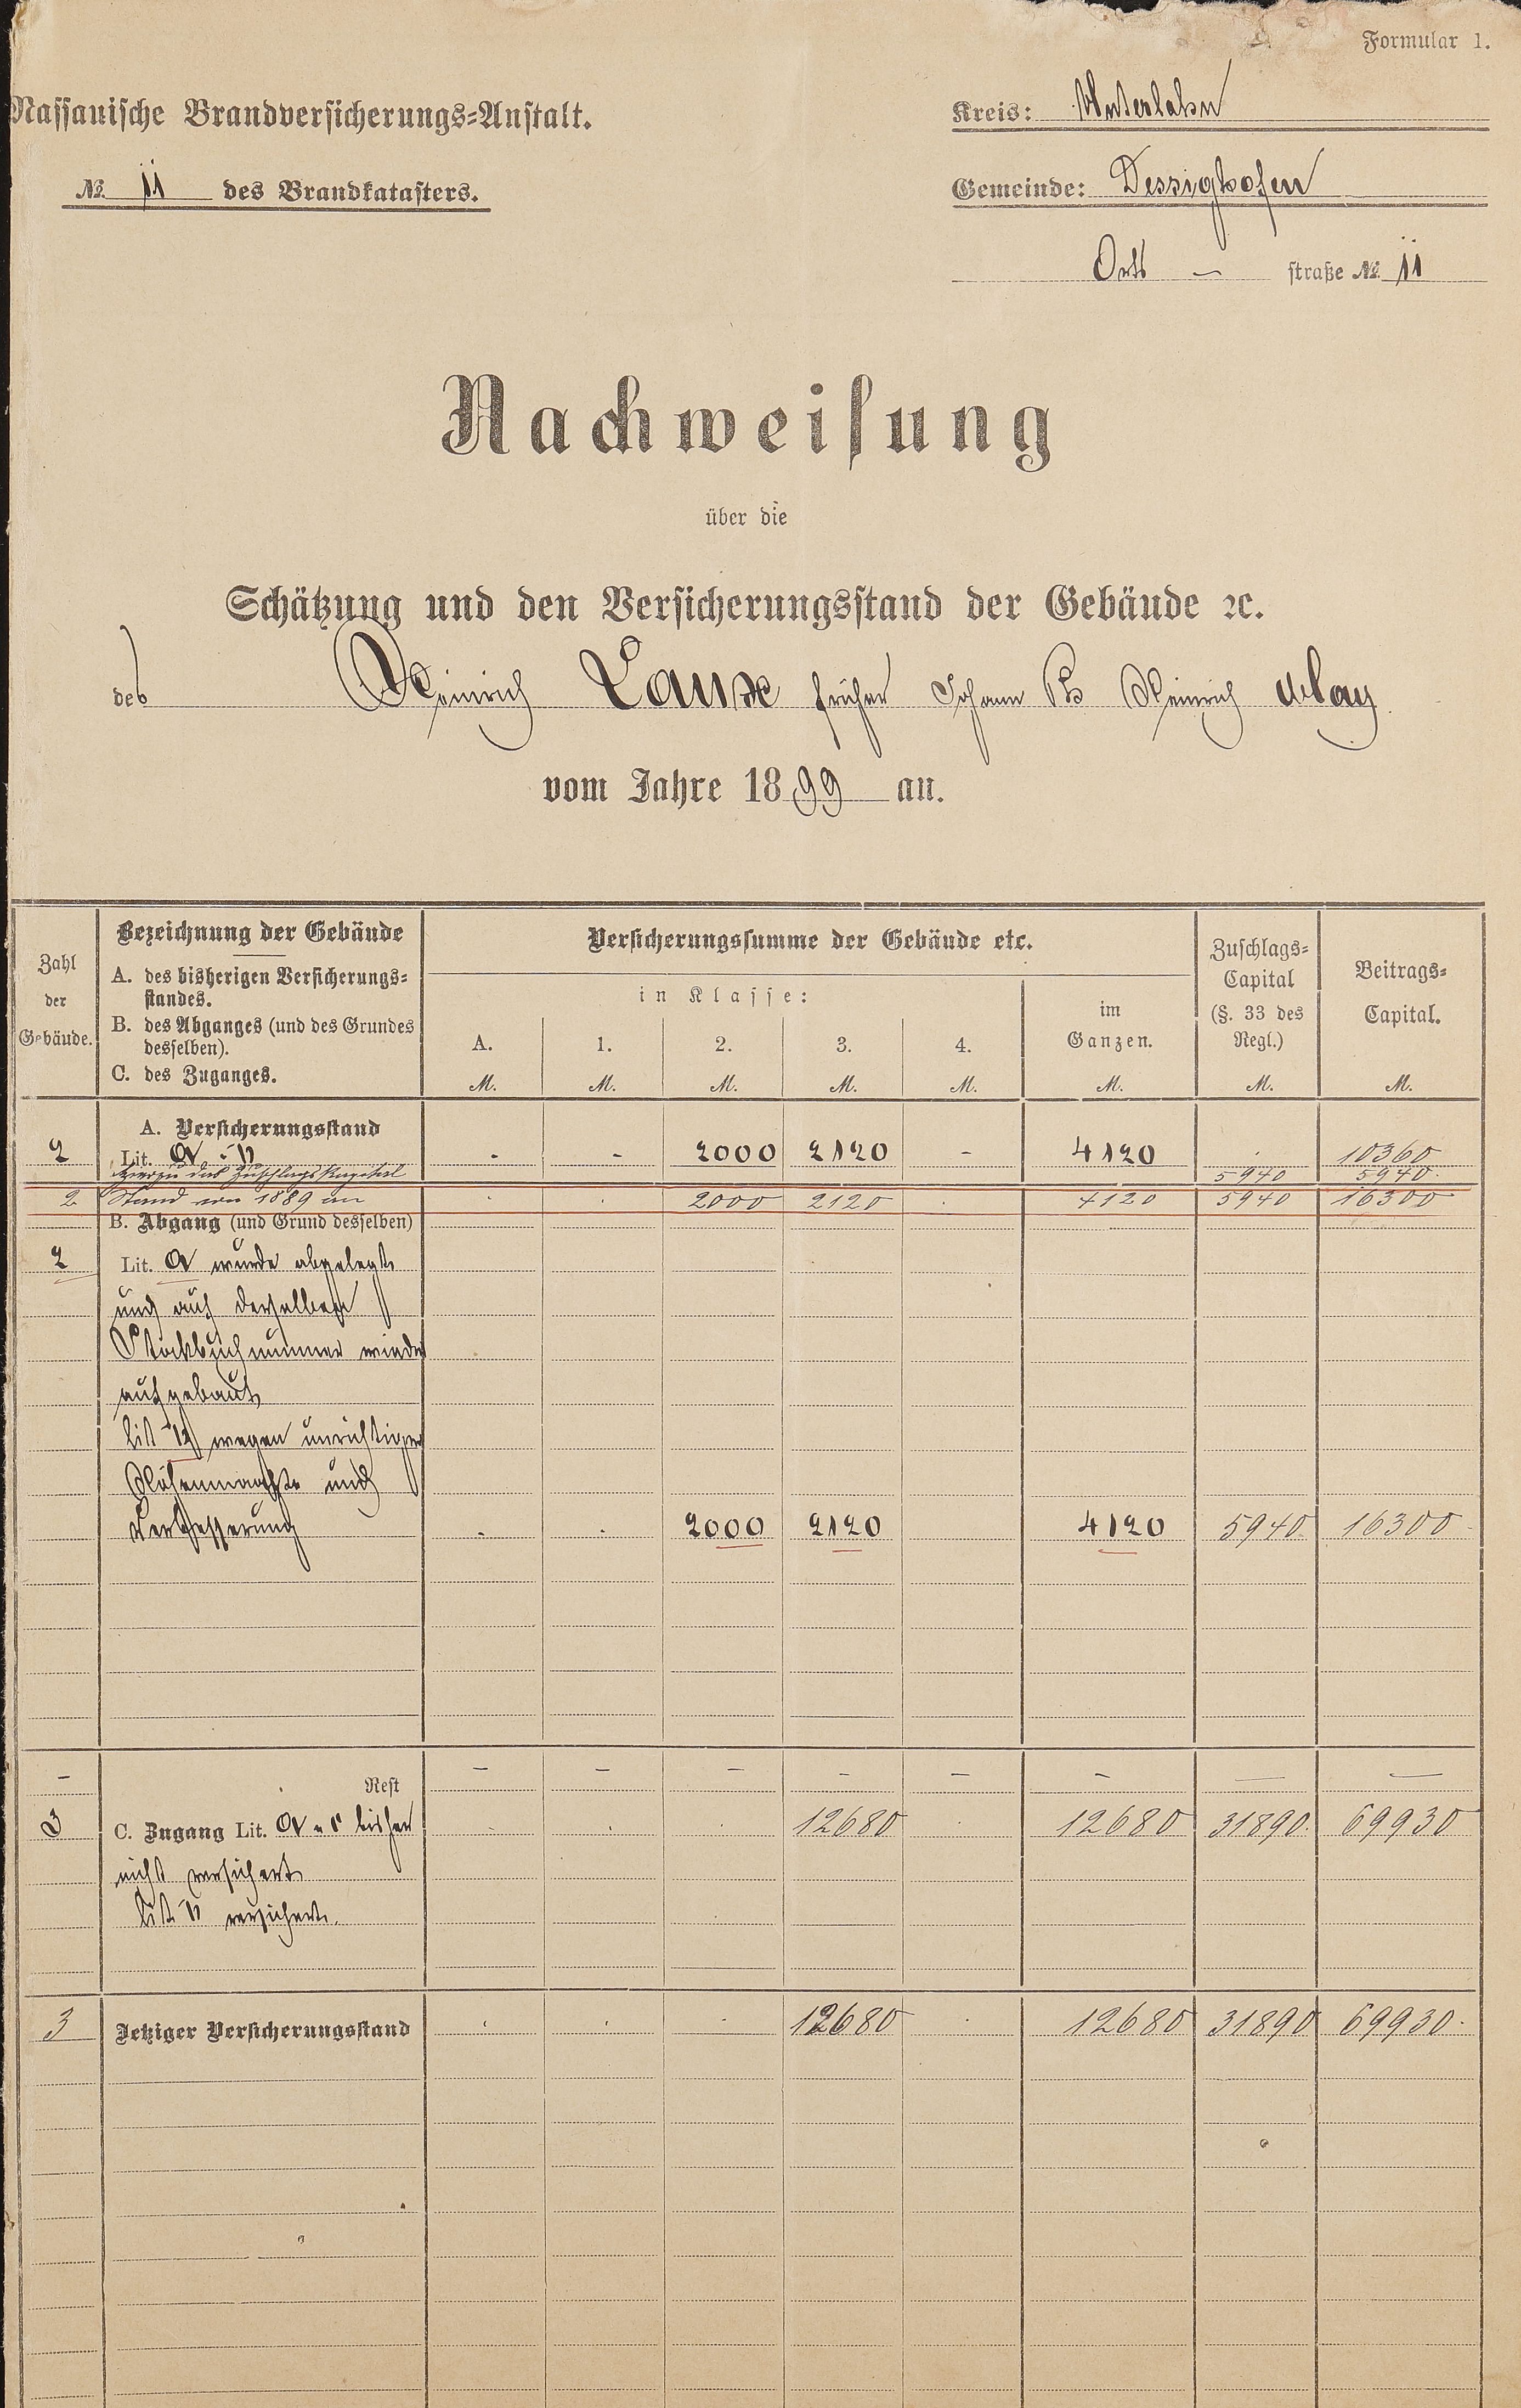 Formular 1.
Nassauische Brandversicherungs-Anstalt.
Kreis: Unterlahn
№ 11 des Brandkatasters.
Gemeinde: Dessighofen
Orts – straße № 11
Nachweisung
über die
Schätzung und den Versicherungsstand der Gebäude ꝛc.
des Heinrich Laux früher Johann Heinrich May
vom Jahre 1899 an.
Zahl der Gebäude.
Bezeichnung der Gebäude
A. des bisherigen Versicherungs-
standes.
B. des Abganges (und des Grundes
desselben).
C. des Zuganges.
Versicherungssumme der Gebäude etc.
in Klasse:
A. 1. 2. 3. 4.
M. M. M. M. M.
im
Ganzen.
M.
Zuschlags-
Capital
(§. 33 des
Regl.)
M.
Beitrags-
Capital.
M.
A. Versicherungsstand
2 Lit. a - b - - 2000 2120 - 4120 . 10360
Hierzu das Zuschlagskapital 5940 5940.
2 Stand von 1889 an . . 2000 2120 . 4120 5940 16300
B. Abgang (und Grund desselben)
2 Lit. a wurde abgelegt
und auf derselben
Stockbuchnummer wieder
aufgebaut
Lit b wegen unrichtiger
Höhenmaaße und
Verbesserung . . 2000 2120 4120 5940 16300
– Rest – – – – – – – –
3 C. Zugang Lit. a u c bisher . . . 12680 . 12680 31890. 69930
nicht versichert
Lit b versichert.
3 Jetziger Versicherungsstand . . . 12680 . 12680 31890 69930.